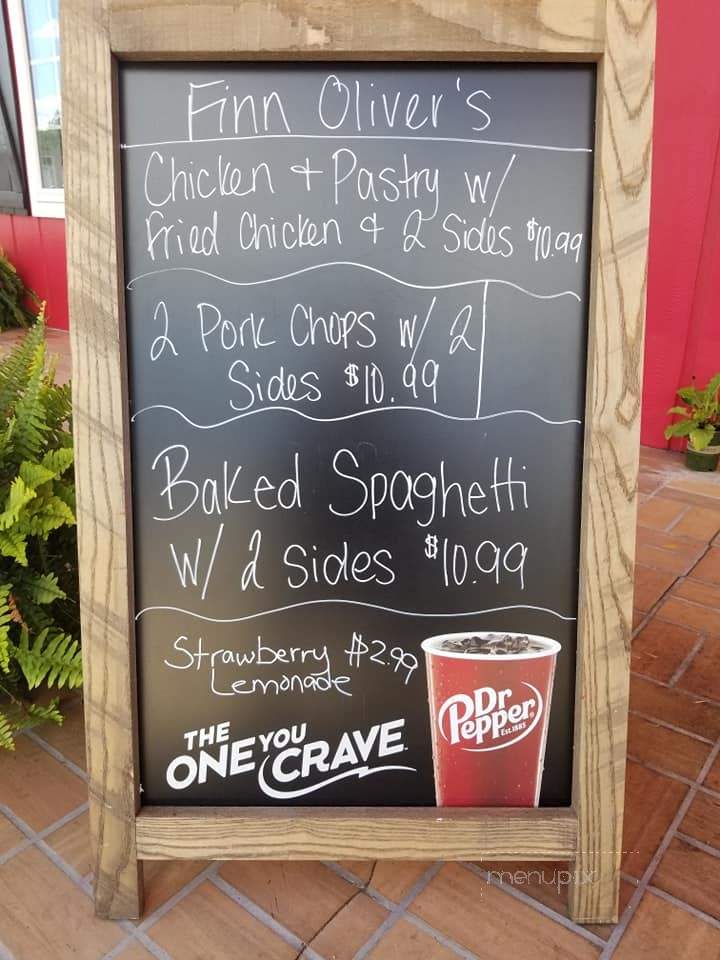 Finn Oliver's
Chicken + Pastry w/
Fried Chicken & 2 Sides $10.99
2 Pork Chops w/ 2
Sides $10.99
Baked Spaghetti
w/ 2 Sides $10.99
Strawberry $2.99
Lemonade
THE
ONE YOU
CRAVE
Dr
Pepper
EST. 1885
menupix